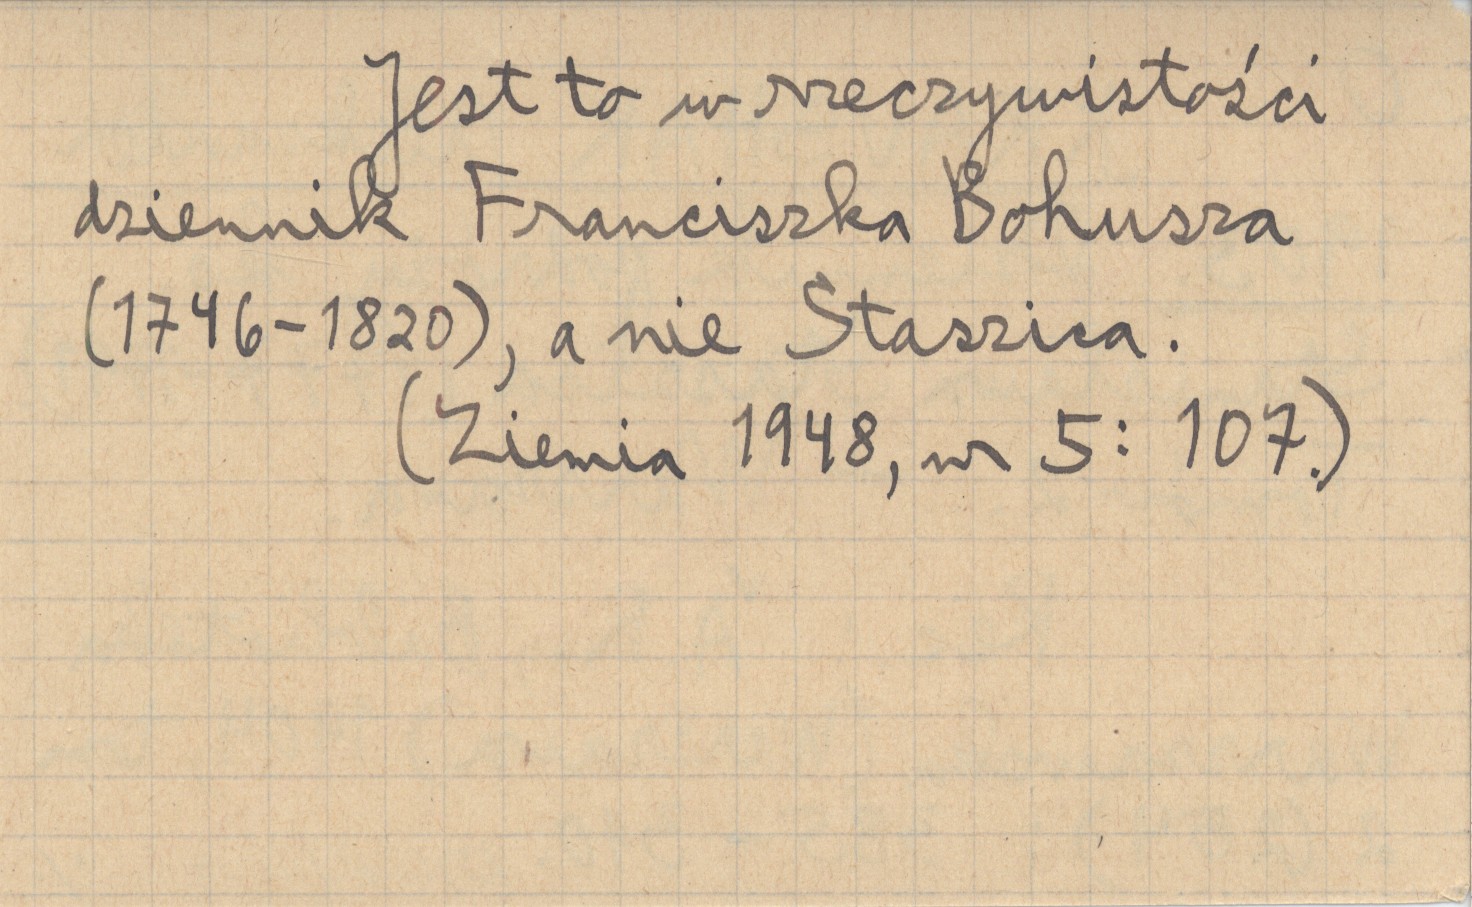 Jest to w rzeczywistości
dziennik Franciszka Bohusza
(1746-1820), a nie Staszica.
(Ziemia 1948, nr 5: 107.)